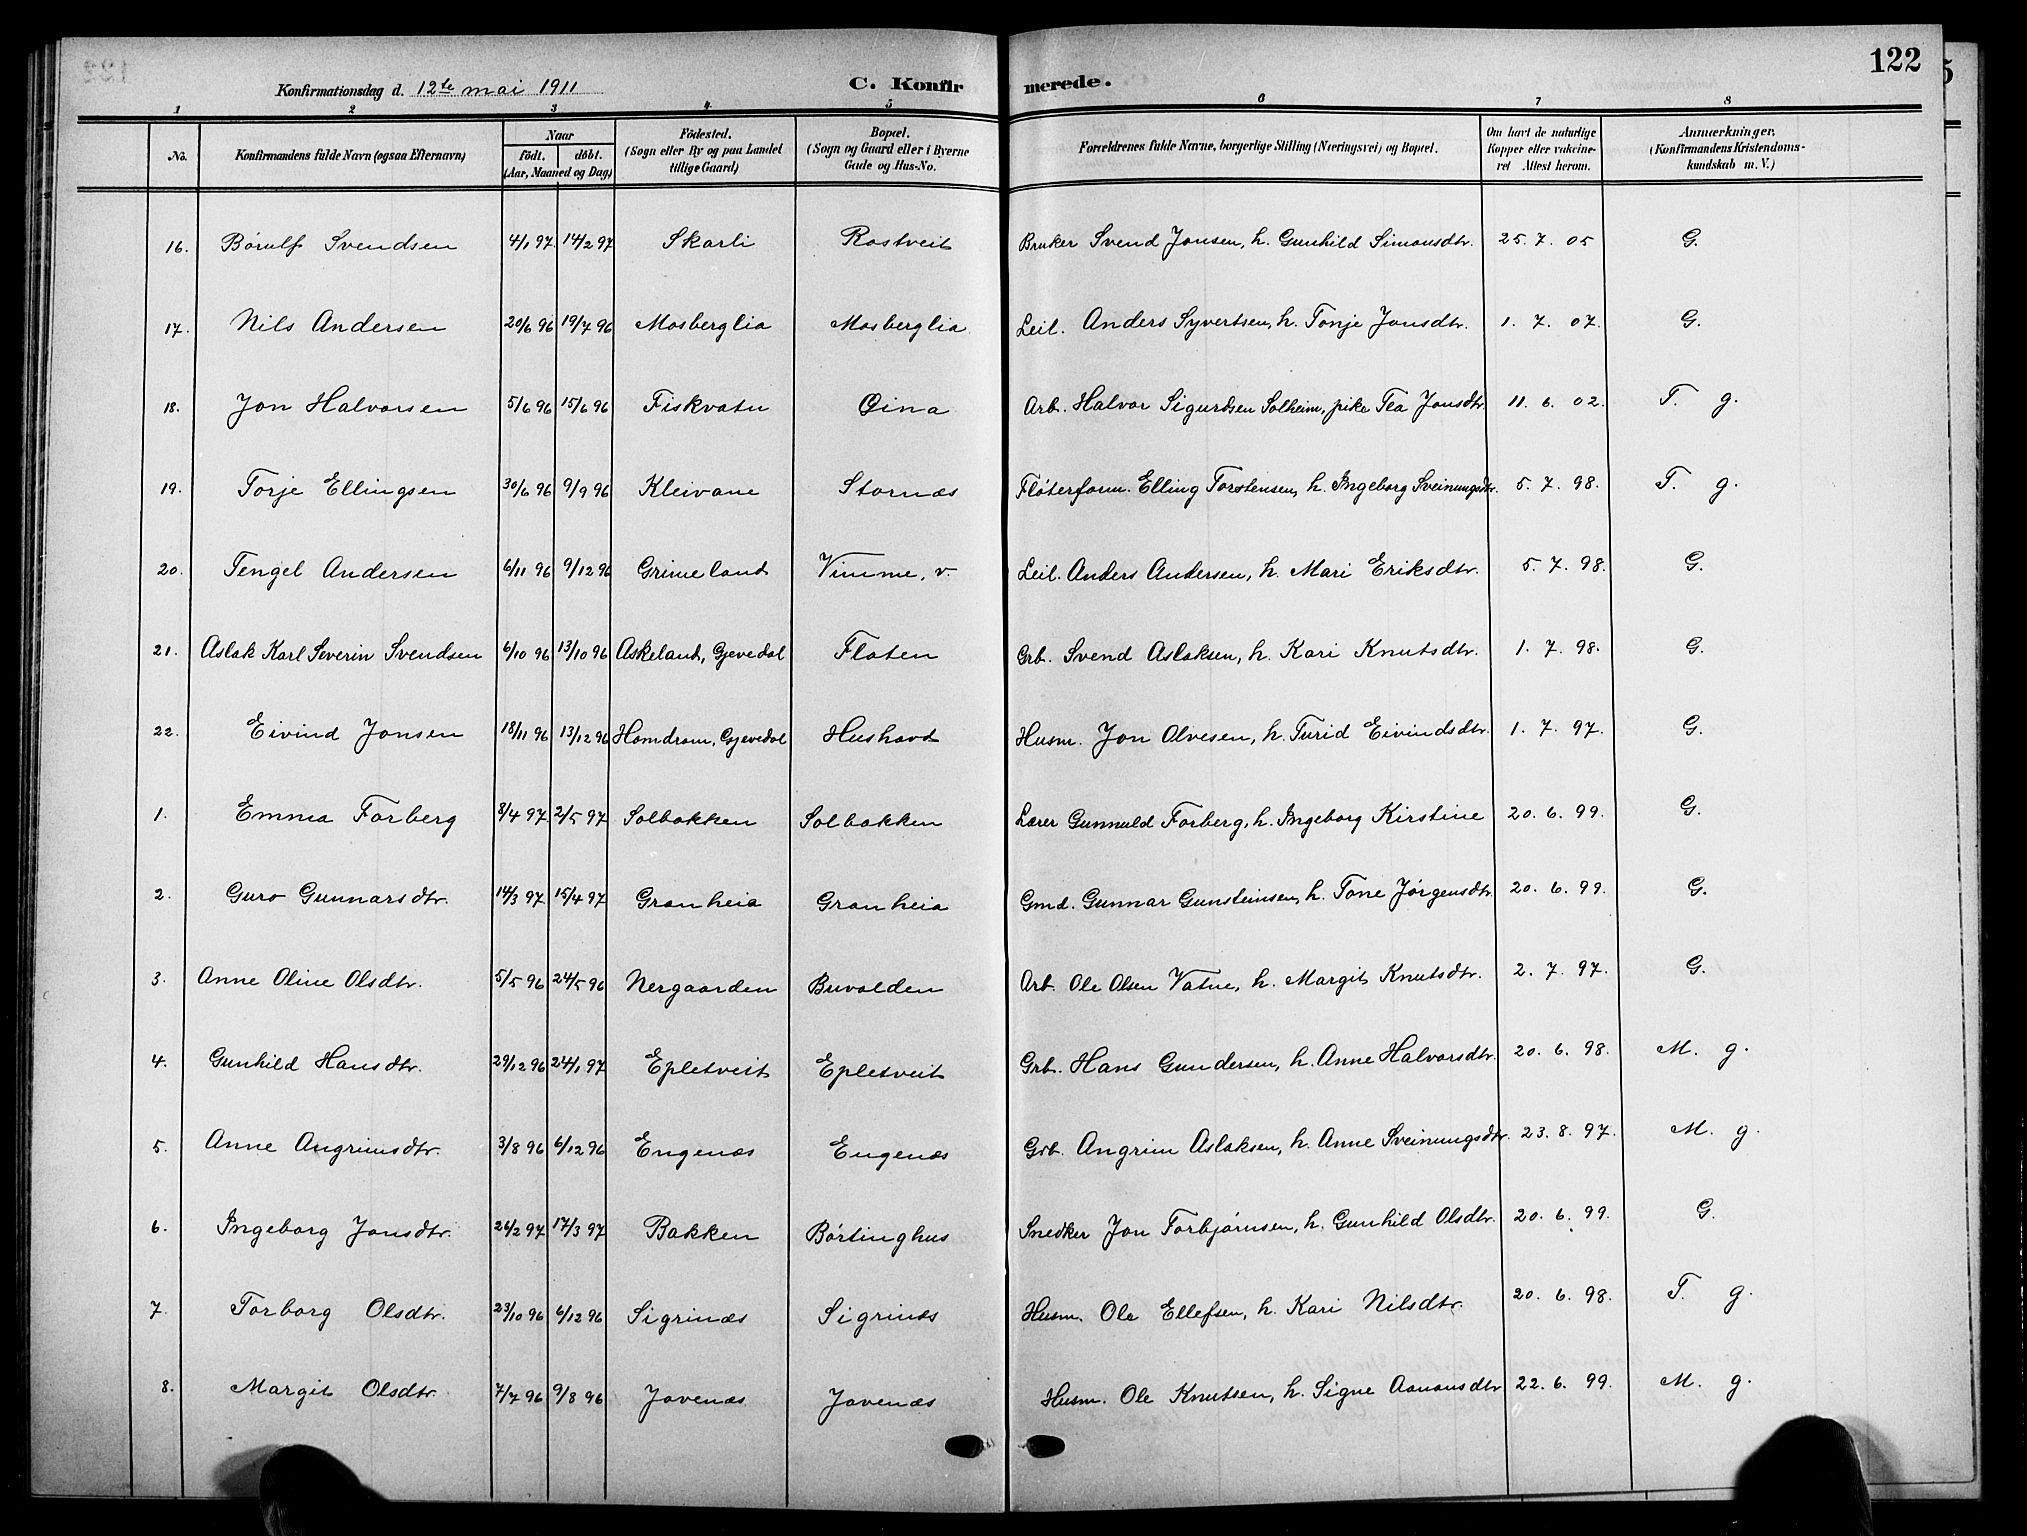 122
Konfirmationsdag d. 12te mai 1911 C. Konfirmerede.
1 2 3 4 5 6 7 8
No. Konfirmandens fulde Navn (ogsaa Efternavn) Naar födt. döbt. (Aar, Maaned og Dag) Födested. (Sogn eller By og paa Landet tillige Gaard) Bopæl. (Sogn og Gaard eller i Byerne Gade og Hus-No. Forældrenes fulde Navne, borgerlige Stilling (Næringsvei) og Bopæl. Om havt de naturlige Kopper eller vakcineret Attest herom. Anmærkninger. (Konfirmandens Kristendomskundskab m. V.)
16. Børulf Svendsen 4/1 97 14/2 97 Skarli Rostveit Bruker Svend Jonsen, h. Gunhild Simonsdtr. 25. 7. 05 G.
17. Nils Andersen 20/6 96 19/7 96 Mosberglia Mosberglia Leil. Anders Syvertsen, h. Tonje Jonsdtr. 1. 7. 07. G.
18. Jon Halvorsen 5/6 96 15/6 96 Fiskvatn Oina Arb. Halvor Sigurdsen Solheim, pike Tea Jonsdtr. 11. 6. 02. T. g.
19. Torje Ellingsen 30/6 96 9/9 96 Kleivane Stornæs Fløterform. Elling Torstensen, h. Ingeborg Sveinungsdtr. 5. 7. 98. T. g.
20. Tengel Andersen 6/11 96 9/12 96 Grimeland Vimme, v. Leil. Anders Andersen, h. Mari Eriksdtr. 5. 7. 98. G.
21. Aslak Karl Severin Svendsen 6/10 96 13/10 96 Askeland, Gjevedal Flaten Grb. Svend Aslaksen, h. Kari Knutsdtr. 1. 7. 98. G.
22. Eivind Jonsen 18/11 96 13/12 96 Homdrom, Gjevedal Hushovd Husm. Jon Alvesen, h. Turid Eivindsdtr. 1. 7. 97. G.
1. Emma Forberg 8/4 97 2/5 97 Solbakken Solbakken Lærer Gunnuld Forberg, h. Ingeborg Kirstine 20. 6. 99. G.
2. Guro Gunnarsdtr. 14/3 97 15/4 97 Granheia Granheia Gmd. Gunnar Gunsteinsen, h. Tone Jørgensdtr. 20. 6. 99. G.
3. Anne Oline Olsdtr. 5/5 96 24/5 96 Nergaarden Buvolden Arb. Ole Olsen Vatne, h. Margit Knutsdtr. 2. 7. 97. G.
4. Gunhild Hansdtr. 29/12 96 24/1 97 Epletveit Epletveit Grb. Hans Gundersen, h. Anne Halvorsdtr. 20. 6. 98. M. g.
5. Anne Angrimsdtr. 3/8 96 6/12 96 Engenæs Engenæs Grb. Angrim Aslaksen, h. Anne Sveinungsdtr. 23. 8. 97. M. g.
6. Ingeborg Jonsdtr. 26/2 97 17/3 97 Bakken Børtinghus Snedker Jon Torbjørnsen, h. Gunhild Olsdtr. 20. 6. 99. G.
7. Torborg Olsdtr. 23/10 96 6/12 96 Sigrinæs Sigrinæs Husm. Ole Ellefsen, h. Kari Nilsdtr. 20. 6. 98. T. g.
8. Margit Olsdtr. 7/7 96 9/8 96 Jovenæs Jovenæs Husm. Ole Knutsen, h. Signe Aanonsdtr 22. 6. 99. M. g.